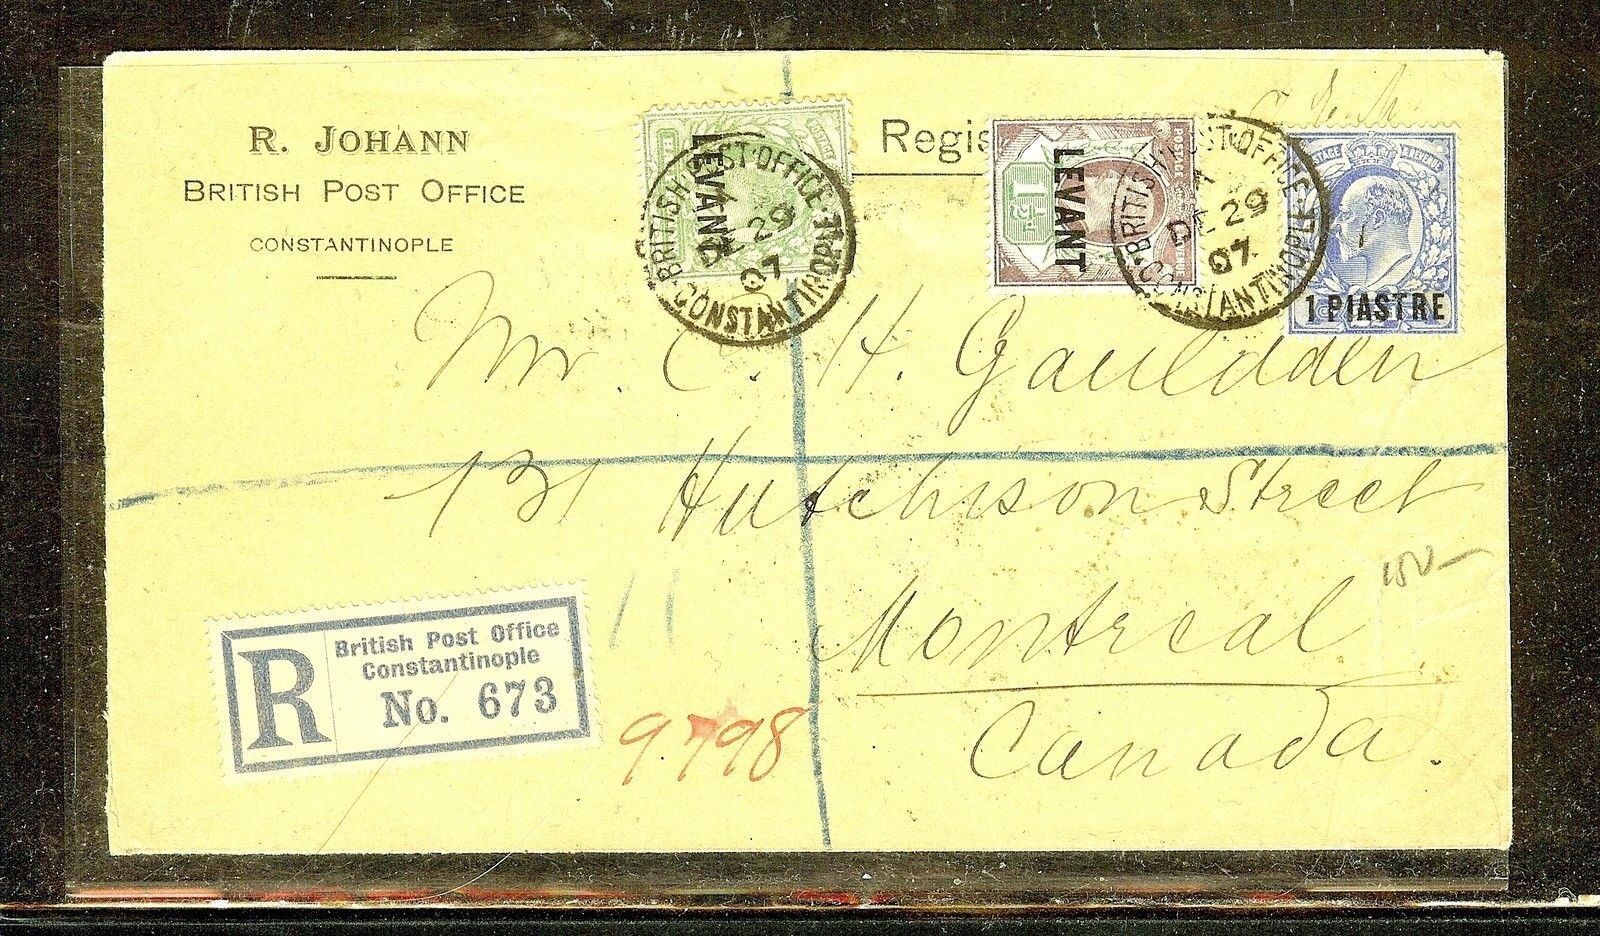 R. JOHANN
BRITISH POST OFFICE
CONSTANTINOPLE
Regis
LEVANT
BRITISH POST OFFICE
29
07
CONSTANTINOPLE
LEVANT
1½d
BRITISH POST OFFICE
DE 29
07
CONSTANTINOPLE
POSTAGE
1 PIASTRE
Mr. C. H. Gauldden
131 Hutchison Street
Montreal
Canada.
R
British Post Office
Constantinople
No. 673
9798